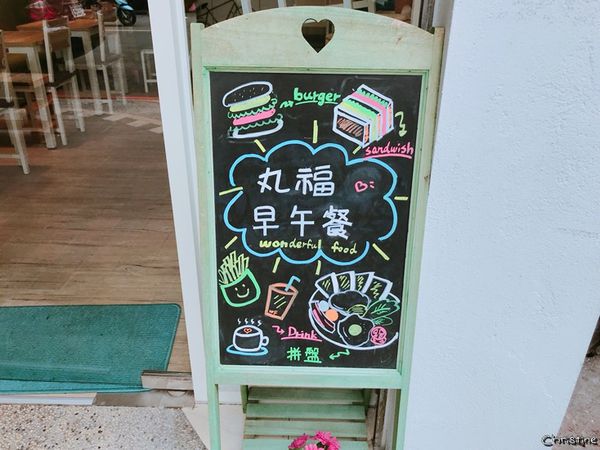 burger
sandwish
丸福
早午餐
wonderful food
Drink
拼盤
Christine